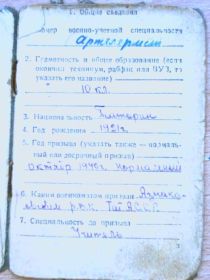 1. Общие сведения
Номер военно-учетной специальности
2. Грамотность и общее образование (если
окончил техникум, рабфак или ВУЗ, то
указать его название)
10 кл.
3. Национальность Татарин
4. Год рождения 1921 г.
5. Год призыва (указать также — нормаль-
ный или досрочный призыв)
октябр 1940 г. нормальный
6. Каким военкоматом призван
р.в.к. ТатАССР
7. Специальность до призыва
Учитель